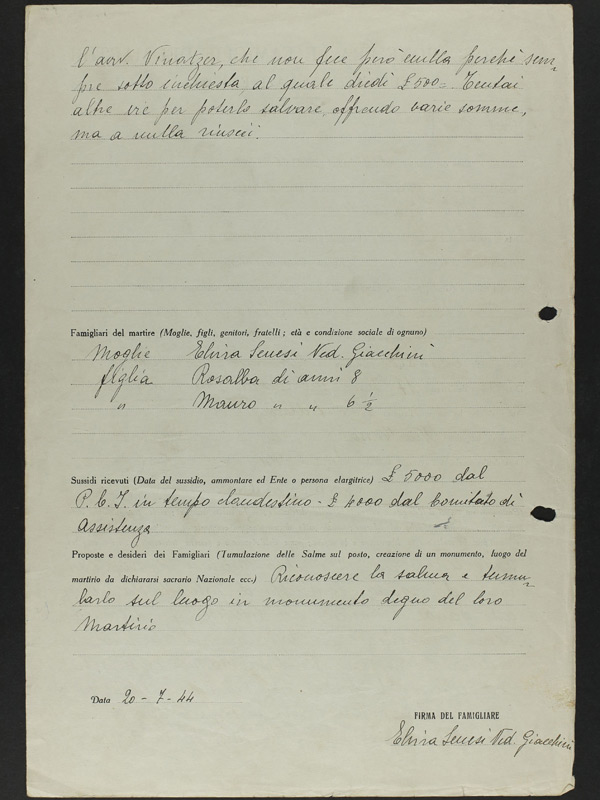 l'avv. Vinatzer, che non fece però nulla perchè sem-
pre sotto inchiesta, al quale diedi £ 500=. Tentai
altre vie per poterlo salvare, offrendo varie somme,
ma a nulla riuscii.
Famigliari del martire (Moglie, figli, genitori, fratelli ; età e condizione sociale di ognuno)
Moglie Elvira Senesi Ved. Giacchini
figlia Rosalba di anni 8
" Mauro " " 6 ½
Sussidi ricevuti (Data del sussidio, ammontare ed Ente o persona elargitrice) £ 5000 dal
P.C.I. in tempo clandestino - £ 4000 dal Comitato di
Assistenza
Proposte e desideri dei Famigliari (Tumulazione delle Salme sul posto, creazione di un monumento, luogo del
martirio da dichiararsi sacrario Nazionale ecc.) Riconoscere la salma e tumu-
larlo sul luogo in monumento degno del loro
Martirio
Data 20 - 7 - 44
FIRMA DEL FAMIGLIARE
Elvira Senesi Ved. Giacchini